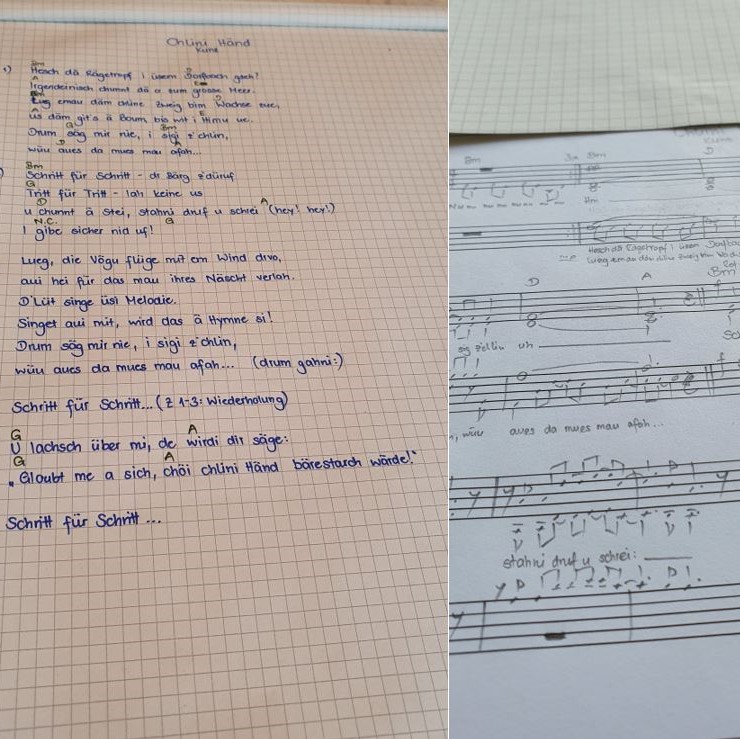 Chlini Händ
Kunz
Bm
Hesch dä Rägetropf i üsem Dorfbach gseh?
A
Irgendeinisch chunnt dä a zum grosse Meer.
Bm
Lueg emau däm chline Zweig bim Wachse zue,
A E
us däm git's ä Boum bis wit i Himu ue.
G Bm
Drum säg mir nie, i sigi z'chlin,
D A
wüu aues da mues mau afah...
Bm
Schritt für Schritt - dr Bärg z'düruf
G
Tritt für Tritt - lah keine us
D A
u chunnt ä Stei, stahni druf u schrei (hey! hey!)
N.C. G
I gibe sicher nid uf!
Lueg, die Vögu flüge mit em Wind divo,
aui hei für das mau ihres Näscht verlah.
D'Lüt singe üsi Melodie.
Singet aui mit, wird das ä Hymne si!
Drum säg mir nie, i sigi z'chlin,
wüu aues da mues mau afah... (drum gahni:)
Schritt für Schritt... (Z 1-3: Wiederholung)
G A
U lachsch über mi, de wirdi dir säge:
G A
"Gloubt me a sich, chöi chlini Händ bärestarch wärde!"
Schritt für Schritt...
Bm
D
Hesch dä Rägetropf i üsem Dorfbac
D A Bm
uh
wüu aues da mues mau afah...
stahni druf u schrei: